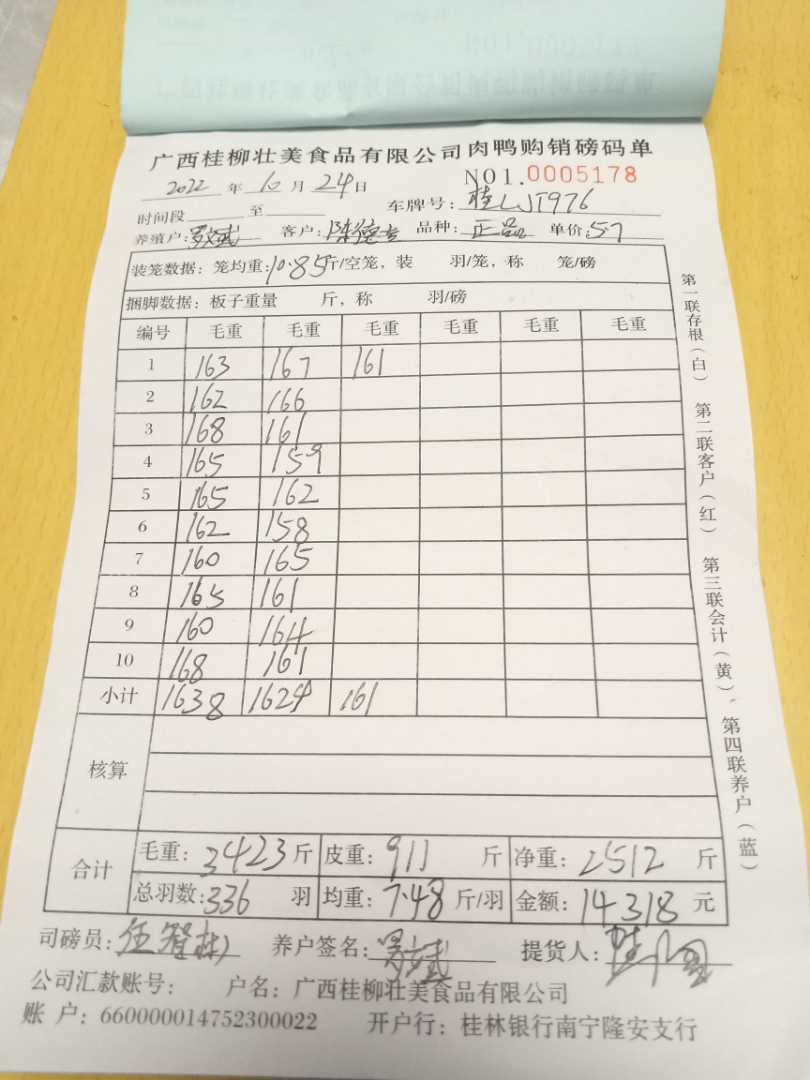 广西桂柳壮美食品有限公司肉鸭购销磅码单
2022 年 10 月 24 日 NO1.0005178
时间段 至 车牌号: 桂LJT976
养殖户: 罗斌 客户: 陈德 品种: 正品 单价: 5.7
装笼数据: 笼均重: 10.85 斤/空笼, 装 羽/笼, 称 笼/磅
捆脚数据: 板子重量 斤, 称 羽/磅
编号 毛重 毛重 毛重 毛重 毛重 毛重
1 163 167 161
2 162 166
3 168 161
4 165 159
5 165 162
6 162 158
7 160 165
8 165 161
9 160 164
10 168 161
小计 1638 1624 161
核算
合计 毛重: 3423 斤 皮重: 911 斤 净重: 2512 斤
总羽数: 336 羽 均重: 7.48 斤/羽 金额: 14318 元
司磅员: 养户签名: 罗斌 提货人:
公司汇款账号: 户名: 广西桂柳壮美食品有限公司
账 户: 660000014752300022 开户行: 桂林银行南宁隆安支行
第一联存根(白) 第二联客户(红) 第三联会计(黄)、第四联养户(蓝)